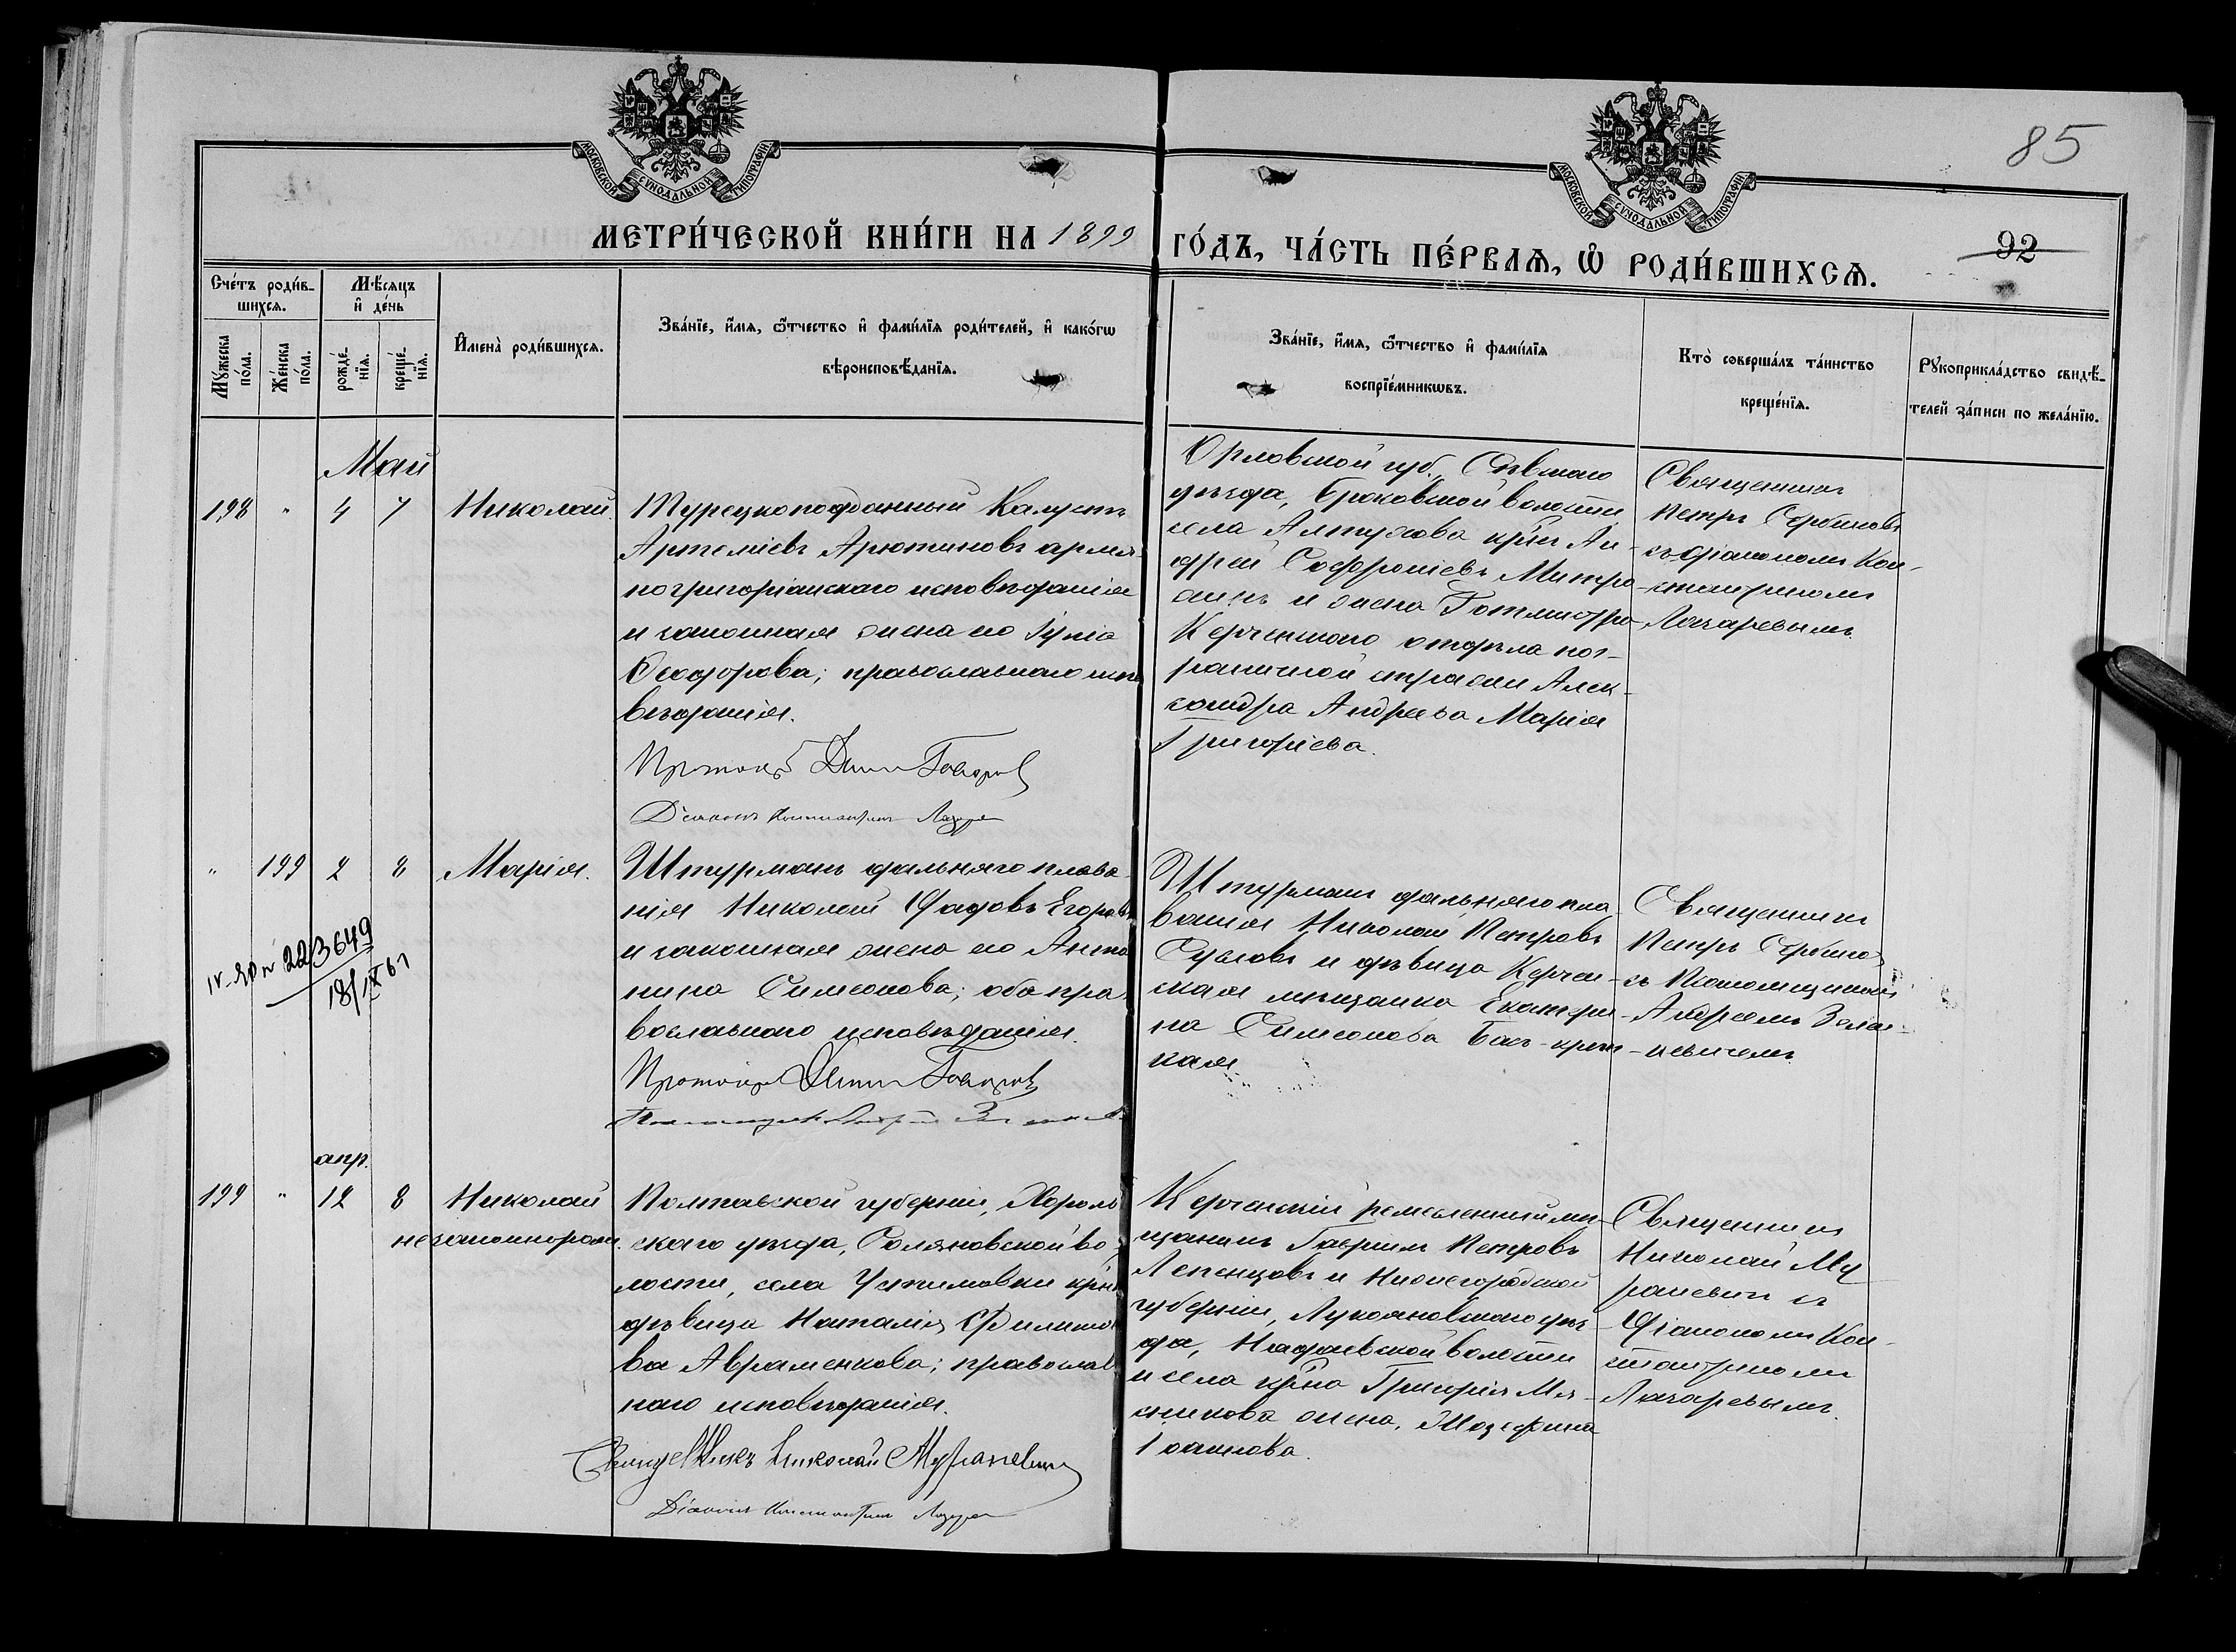 85
92
МОСКОВСКОЙ СУНОДАЛЬНОЙ ТИПОГРАФІИ
МОСКОВСКОЙ СУНОДАЛЬНОЙ ТИПОГРАФІИ
МЕТРИ́ЧЕСКОЙ КНИ́ГИ НА 1899 ГО́ДЪ, ЧА́СТЬ ПЕ́РВАѦ, Ѡ РОДИ́ВШИХСѦ.
Сче́тъ роди́в-
шихсѧ.
Мꙋ́жеска по́ла.
Же́нска по́ла.
Мѣ́сѧцъ и де́нь
рожде́-
нїѧ.
креще́-
нїѧ.
Имена̀ роди́вшихсѧ.
Зва́нїе, и́мѧ, ѻ́тчество и фами́лїѧ роди́телей, и како́гѡ
вѣроисповѣ́данїѧ.
Зва́нїе, и́мѧ, ѻ́тчество и фами́лїѧ
воспрїе́мникѡвъ.
Кто̀ соверша́лъ та́инство
креще́нїѧ.
Рꙋкоприкла́дство свидѣ́-
телей за́писи по жела́нїю.
Май
198 " 4 7 Николай
Турецкоподданный Калустъ
Артеміевъ Арютиновъ армя-
но григоріанскаго исповѣданія
и законная жена его
Ѳеодорова; православнаго испо
вѣданія.
Протоіер
Діаконъ Константин Лазаре
Орловской губ., Сѣвскаго
уѣзда, волости
села Алтухова крн Ан-
дрей Софроніевъ Митро-
и жена Ротмистра
Керченскаго отдѣла пог-
раничной стражи Алек-
сандра Андреева Марія
Григоріева.
Священник
Петръ Сербиновъ
съ діакономъ Кон-
стантиномъ
Лазаревымъ.
" 199 2 8 Марія.
Штурманъ дальняго плава-
нія Николай Ѳадовъ Егоровъ
и законная жена его Анто
нина Симеонова; оба пра
вославнаго исповѣданія.
Протоіер
223649
18/IX 61
Штурманъ дальняго пла-
ванія Николай Петровъ
Сусловъ и дѣвица Керчен-
ская мѣщанка Екатери-
на Симеонова
ская
Священникъ
Петръ Сербинов
съ Псаломщиком
Андреемъ Зелен-
кевичемъ
апр.
199 " 12 8 Николай
незаконнорожд.
Полтавской губерніи, Хороль
скаго уѣзда, во
лости, села Устимовки крн
дѣвица Наталія Филипо
ва Авраменкова; православ
наго исповѣданія.
Священникъ Николай Мураневич
Діаконъ Константин Лазаре
Керченскій ремесленный мѣ-
щанинъ Гавріилъ Петровъ
Лепенцовъ и Нижегородской
губерніи, Лукояновскаго уѣз-
да, волости
и села крна Григорія Мя-
сникова жена,
Священникъ
Николай Му
раневич съ
Діакономъ Кон-
стантиномъ
Лазаревымъ.